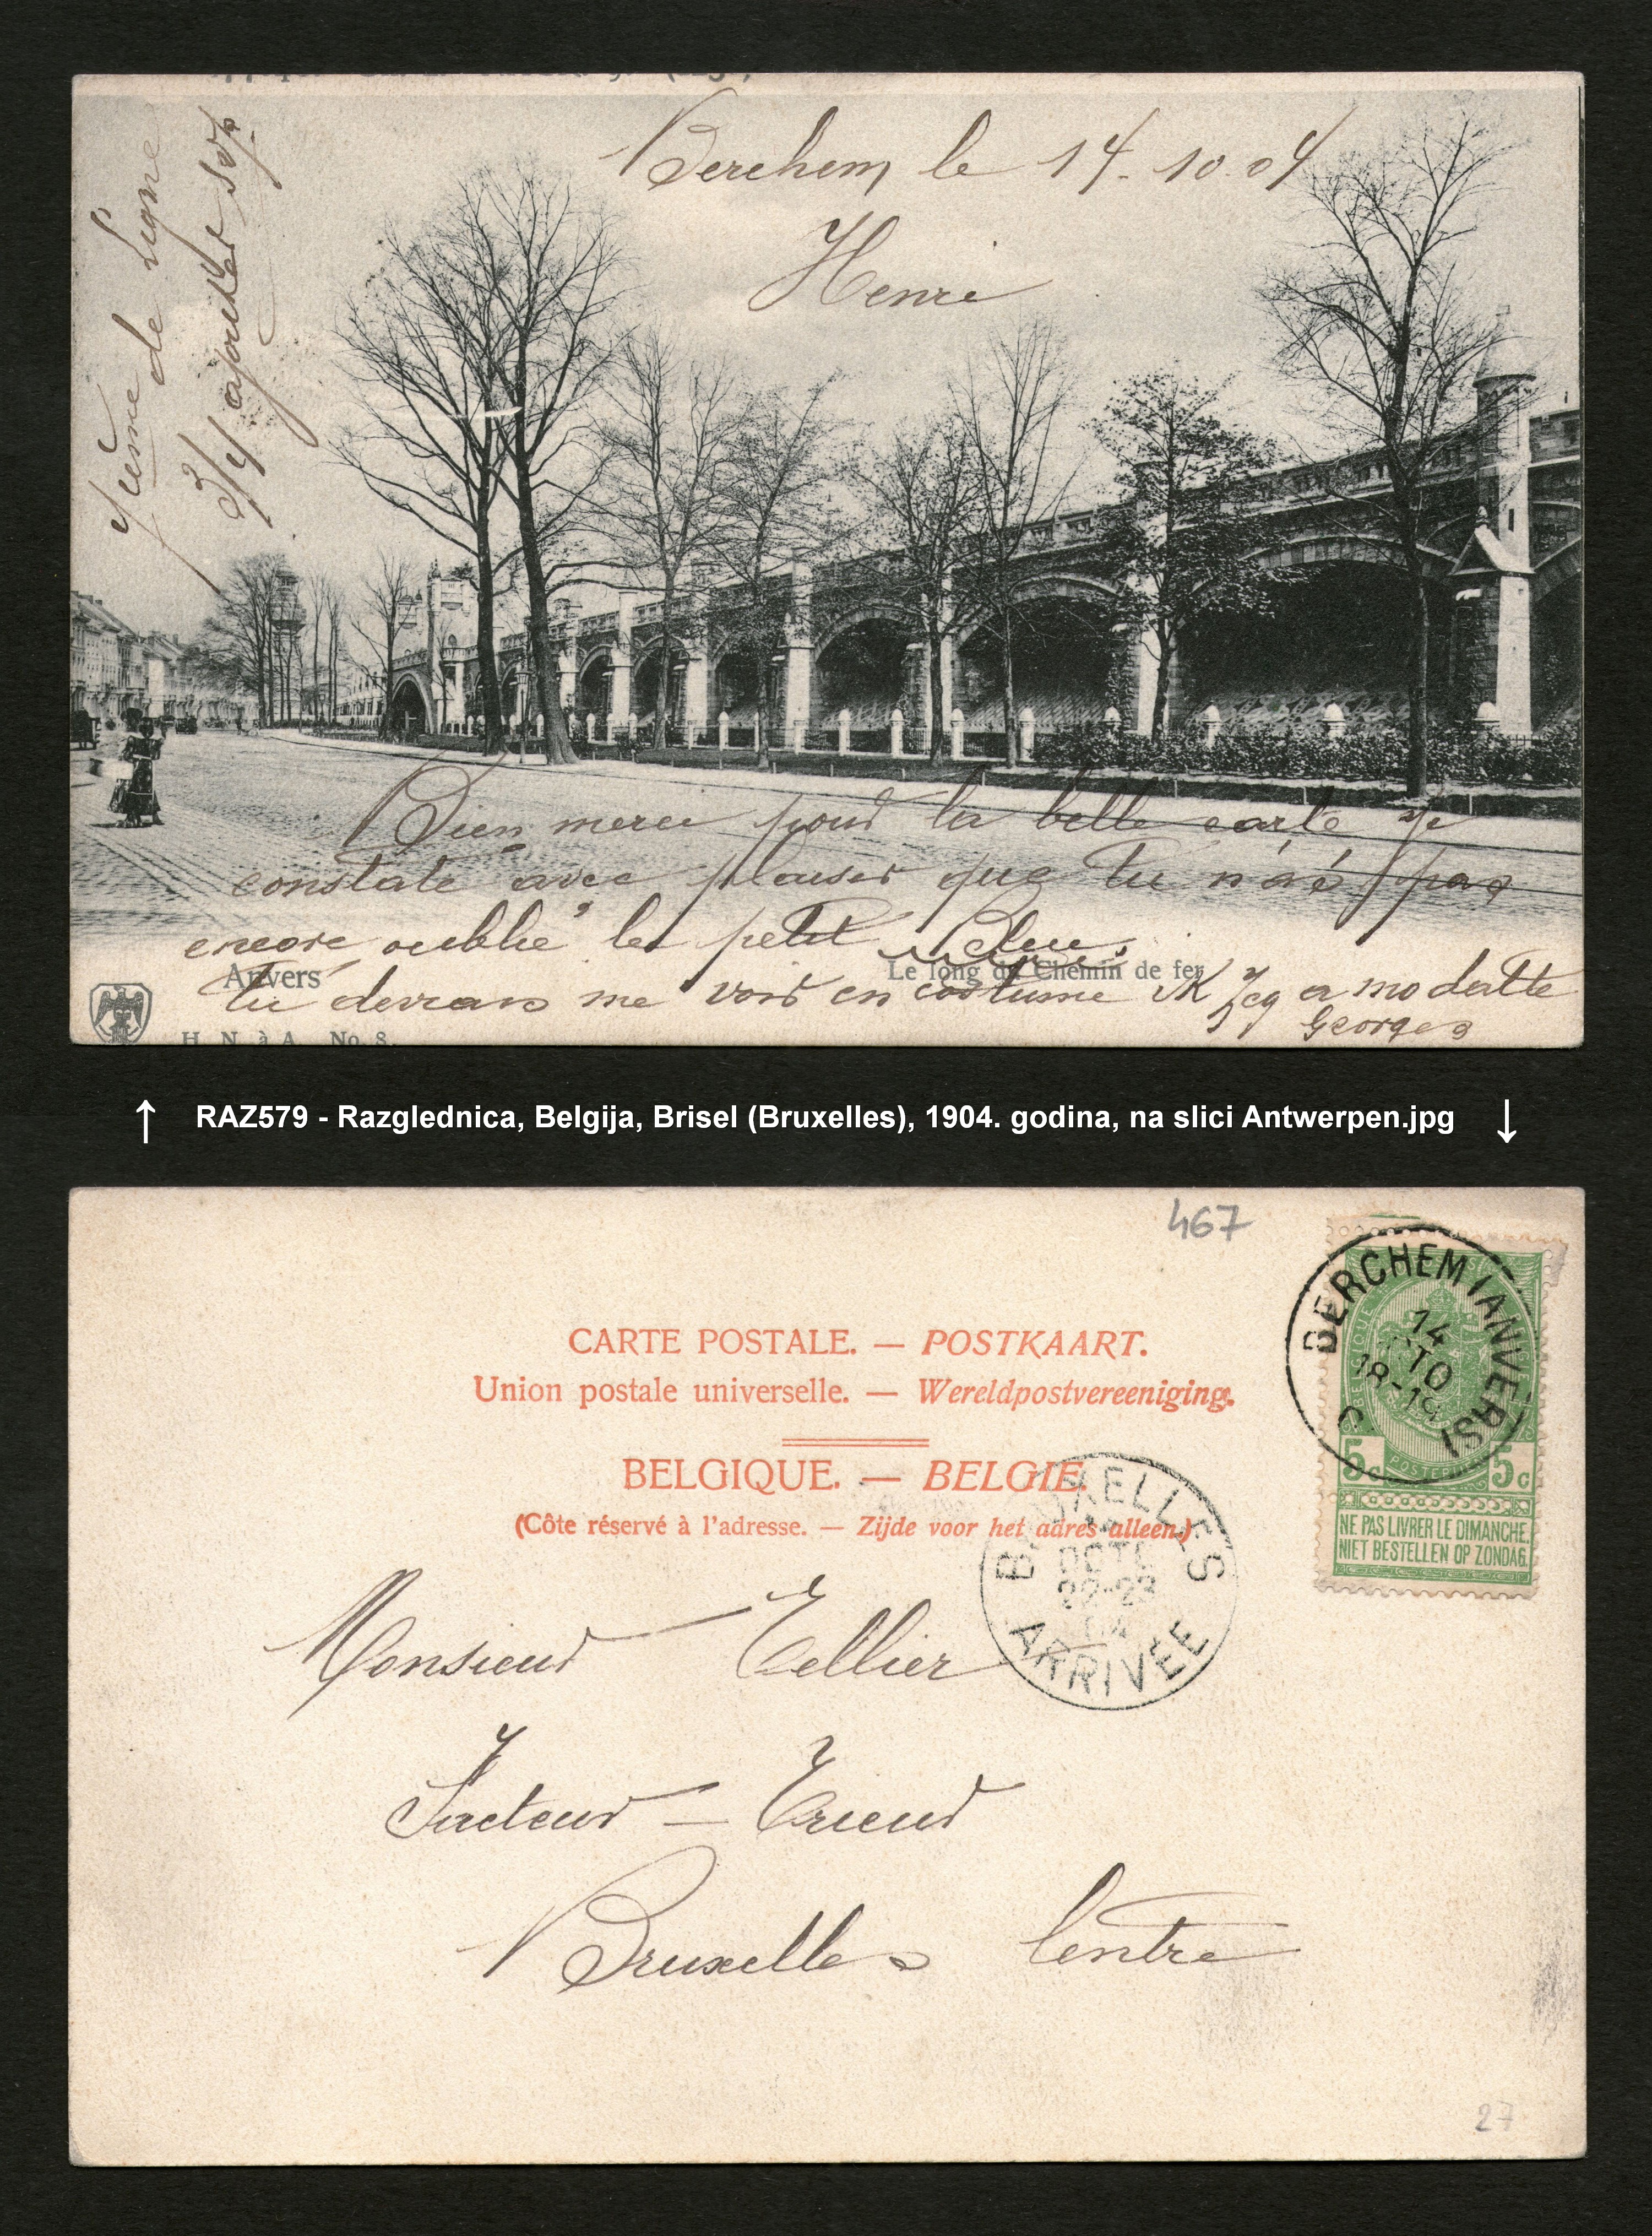 Berchem le 14.10.04
Henri
7ième de Ligne
3/4 ajouter svp
Bien merci pour la belle carte je
constate avec plaisir que tu n'as pas
encore oublié le petit Bleu.
Anvers
Le long du Chemin de fer
tu devrais me voir en costume
Georges
H. N. à A. No. 8.
↑ RAZ579 - Razglednica, Belgija, Brisel (Bruxelles), 1904. godina, na slici Antwerpen.jpg ↓
467
CARTE POSTALE. — POSTKAART.
Union postale universelle. — Wereldpostvereeniging.
BELGIQUE. — BELGIE.
(Côte réservé à l'adresse. — Zijde voor het adres alleen.)
BERCHEM (ANVERS)
14
10
18-19
C
5c POSTES 5c
NE PAS LIVRER LE DIMANCHE.
NIET BESTELLEN OP ZONDAG.
BRUXELLES
OCTO
22-23
04
ARRIVÉE
Monsieur Tellier
Facteur - Trieur
Bruxelles Centre
27